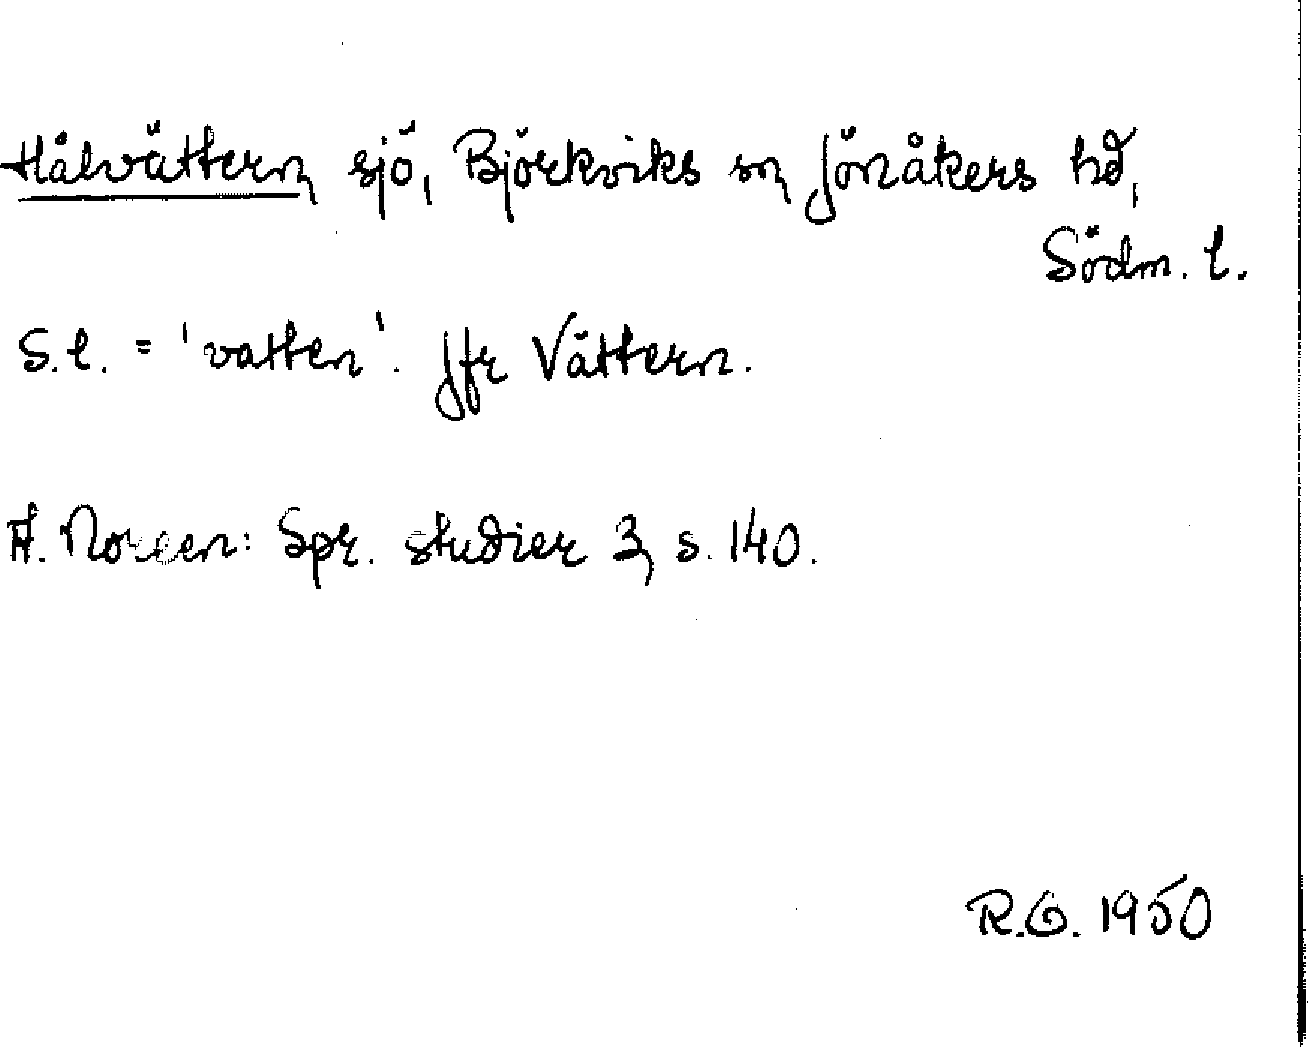 Hålvättern, sjö, Björkviks sn, Jönåkers hd,
Södm. l.
S.l. = 'vatten'. Jfr Vättern.
A. Noreen: Spr. studier 3, s. 140.
R.G. 1950